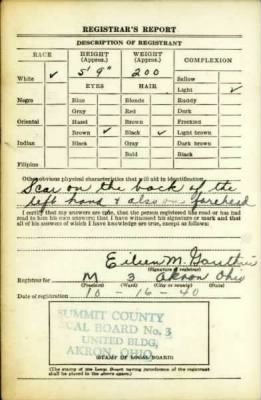 REGISTRAR'S REPORT
DESCRIPTION OF REGISTRANT
RACE
HEIGHT (Approx.)
WEIGHT (Approx.)
COMPLEXION
White ✓
5' 9"
200
Sallow
EYES
HAIR
Light ✓
Negro
Blue
Blonde
Ruddy
Gray
Red
Dark
Oriental
Hazel
Brown
Freckled
Brown ✓
Black ✓
Light brown
Indian
Black
Gray
Dark brown
Bald
Black
Filipino
Other obvious physical characteristics that will aid in identification
Scar on the back of the
left hand & also on forehead
I certify that my answers are true; that the person registered has read or has had
read to him his own answers; that I have witnessed his signature or mark and that
all of his answers of which I have knowledge are true, except as follows:
Eileen M.
(Signature of registrar)
Registrar for M 3 Akron Ohio
(Precinct) (Ward) (City or county)
Date of registration 10-16-40
SUMMIT COUNTY
LOCAL BOARD No. 3
UNITED BLDG,
AKRON, OHIO
(STAMP OF LOCAL BOARD)
(The stamp of the Local Board having jurisdiction of the registrant
shall be placed in the above space.)